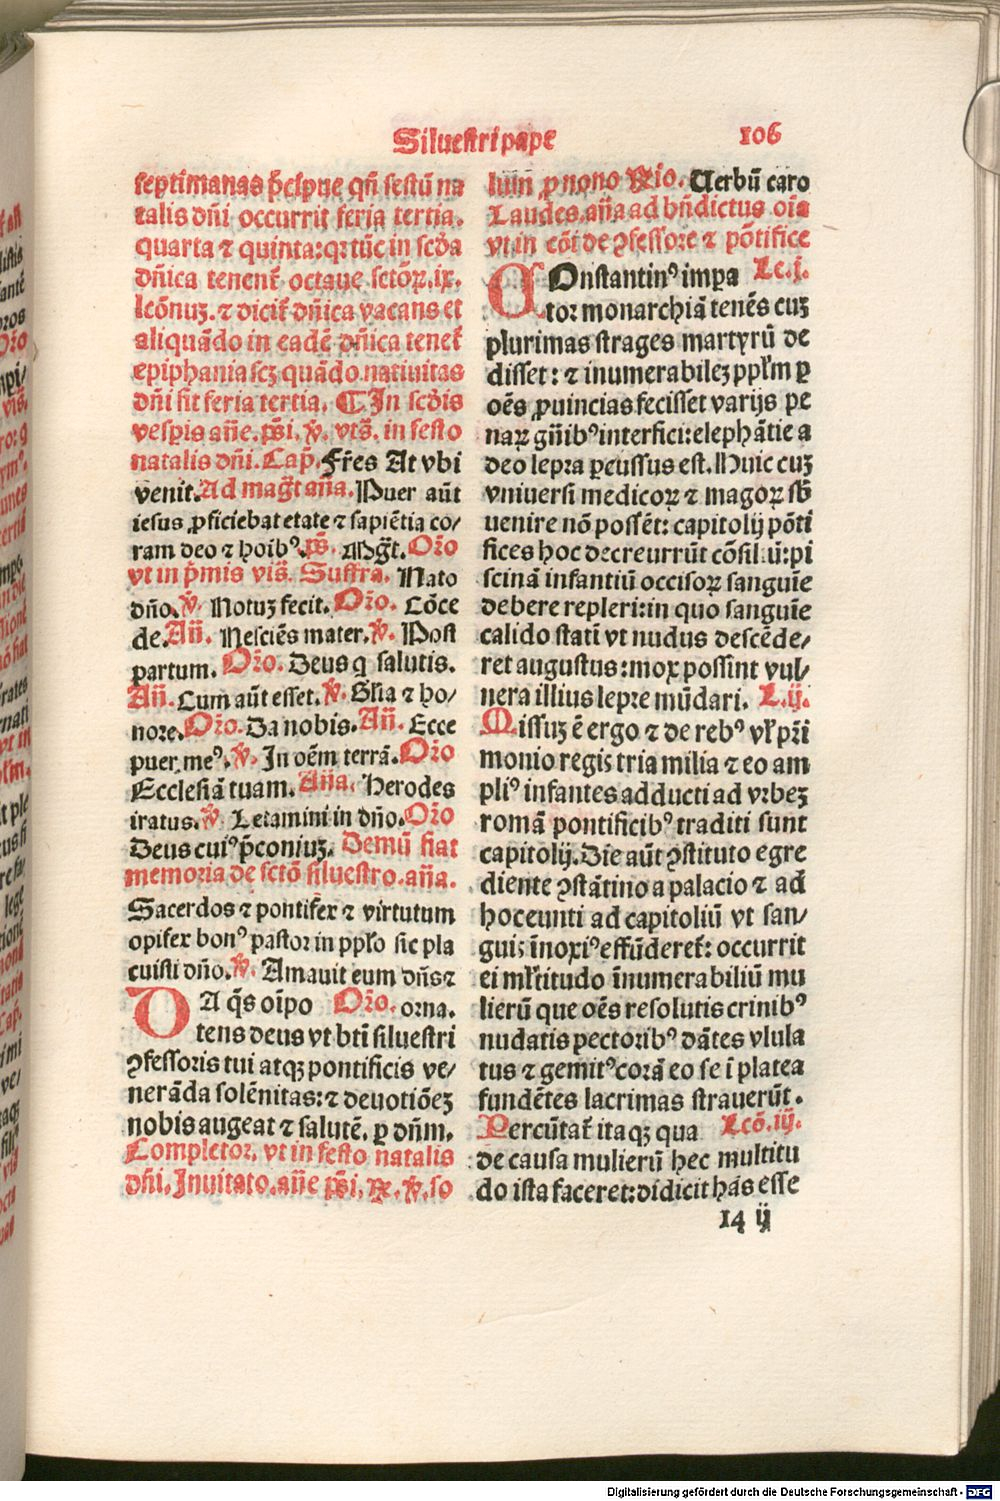 Siluestri pape
106
septimanas p̄cipue qn̄ festū na
talis dn̄i occurrit feria tertia.
quarta ⁊ quinta: qꝛ tūc in scd̄a
dn̄ica tenent᷑ octaue sctōꝝ. ix.
lcōnuꝫ. ⁊ dicit᷑ dn̄ica vacans et
aliquādo in eadē dn̄ica tenet᷑
epiphania scꝫ quādo natiuitas
dn̄i sit feria tertia. ¶ In scd̄is
vesp̄is an̄e. ps̄i. ℣. vts̄. in festo
natalis dn̄i. Cap̄. Fr̄es At vbi
venit. Ad mag᷑t an̄a. Puer aūt
iesus ꝓficiebat etate ⁊ sapiētia co/
ram deo ⁊ hoībꝰ. ps̄. Mg᷑t. Or̄o
vt in p̄mis vis̄. Suffra. Nato
dn̄o. ℣. Notuꝫ fecit. Or̄o. Cōce
de. An̄. Nesciēs mater. ℣. Post
partum. Or̄o. Deus q̄ salutis.
An̄. Cum aūt esset. ℣. Gl̄ia ⁊ ho/
nore. Or̄o. Da nobis. An̄. Ecce
puer meꝰ. ℣. In oēm terrā. Or̄o
Ecclesiā tuam. An̄a. Herodes
iratus. ℣. Letamini in dn̄o. Or̄o
Deus cuiꝰ p̄coniuꝫ. Demū fiat
memoria de sctō siluestro. an̄a.
Sacerdos ⁊ pontifex ⁊ virtutum
opifex bonꝰ pastor in ppl̄o sic pla
cuisti dn̄o. ℣. Amauit eum dn̄s ⁊
DA q̄s oīpo Or̄o. orna.
tens deus vt bt̄i siluestri
ꝯfessoris tui atqꝫ pontificis ve/
nerāda solēnitas: ⁊ deuotiōeꝫ
nobis augeat ⁊ salutē. ꝑ dn̄m.
Completor. vt in festo natalis
dn̄i. Inuitato. an̄e ps̄i. ℟. ℣. so
lum ꝓ nono ℟io. Uerbū caro
Laudes. an̄a ad bn̄dictus oīa
vt in cōi de ꝯfessore ⁊ pōtifice
COnstantinꝰ impa Lc. j.
tor monarchiā tenēs cuꝫ
plurimas strages martyrū de
disset: ⁊ inumerabileꝫ ppl̄m ꝑ
oēs ꝓuincias fecisset varijs pe
naꝝ gn̄ibꝰ interfici: elephātie a
deo lepra ꝑcussus est. Huic cuꝫ
vniuersi medicoꝝ ⁊ magoꝝ sb̄
uenire nō possēt: capitolij pōti
fices hoc decreuerūt cōsiliū: pi
scinā infantiū occisoꝝ sanguīe
debere repleri: in quo sanguīe
calido statī vt nudus descēde/
ret augustus: mox possint vul/
nera illius lepre mūdari. L. ij.
Missuꝫ ē ergo ⁊ de rebꝰ vl̄ pr̄i
monio regis tria milia ⁊ eo am
pliꝰ infantes adducti ad vrbeꝫ
romā pontificibꝰ traditi sunt
capitolij. Die aūt ꝯstituto egre
diente ꝯstātino a palacio ⁊ ad
hoc eunti ad capitoliū vt san/
guis īnoxiꝰ effūderet᷑: occurrit
ei ml̄titudo īnumerabiliū mu
lierū que oēs resolutis crinibꝰ
nudatis pectoribꝰ dātes vlula
tus ⁊ gemitꝰ corā eo se ī platea
fundētes lacrimas strauerūt.
Percūtat᷑ itaqꝫ qua Lcō. iij.
de causa mulierū hec multitu
do ista faceret: didicit has esse
14 ij
Digitalisierung gefördert durch die Deutsche Forschungsgemeinschaft - DFG